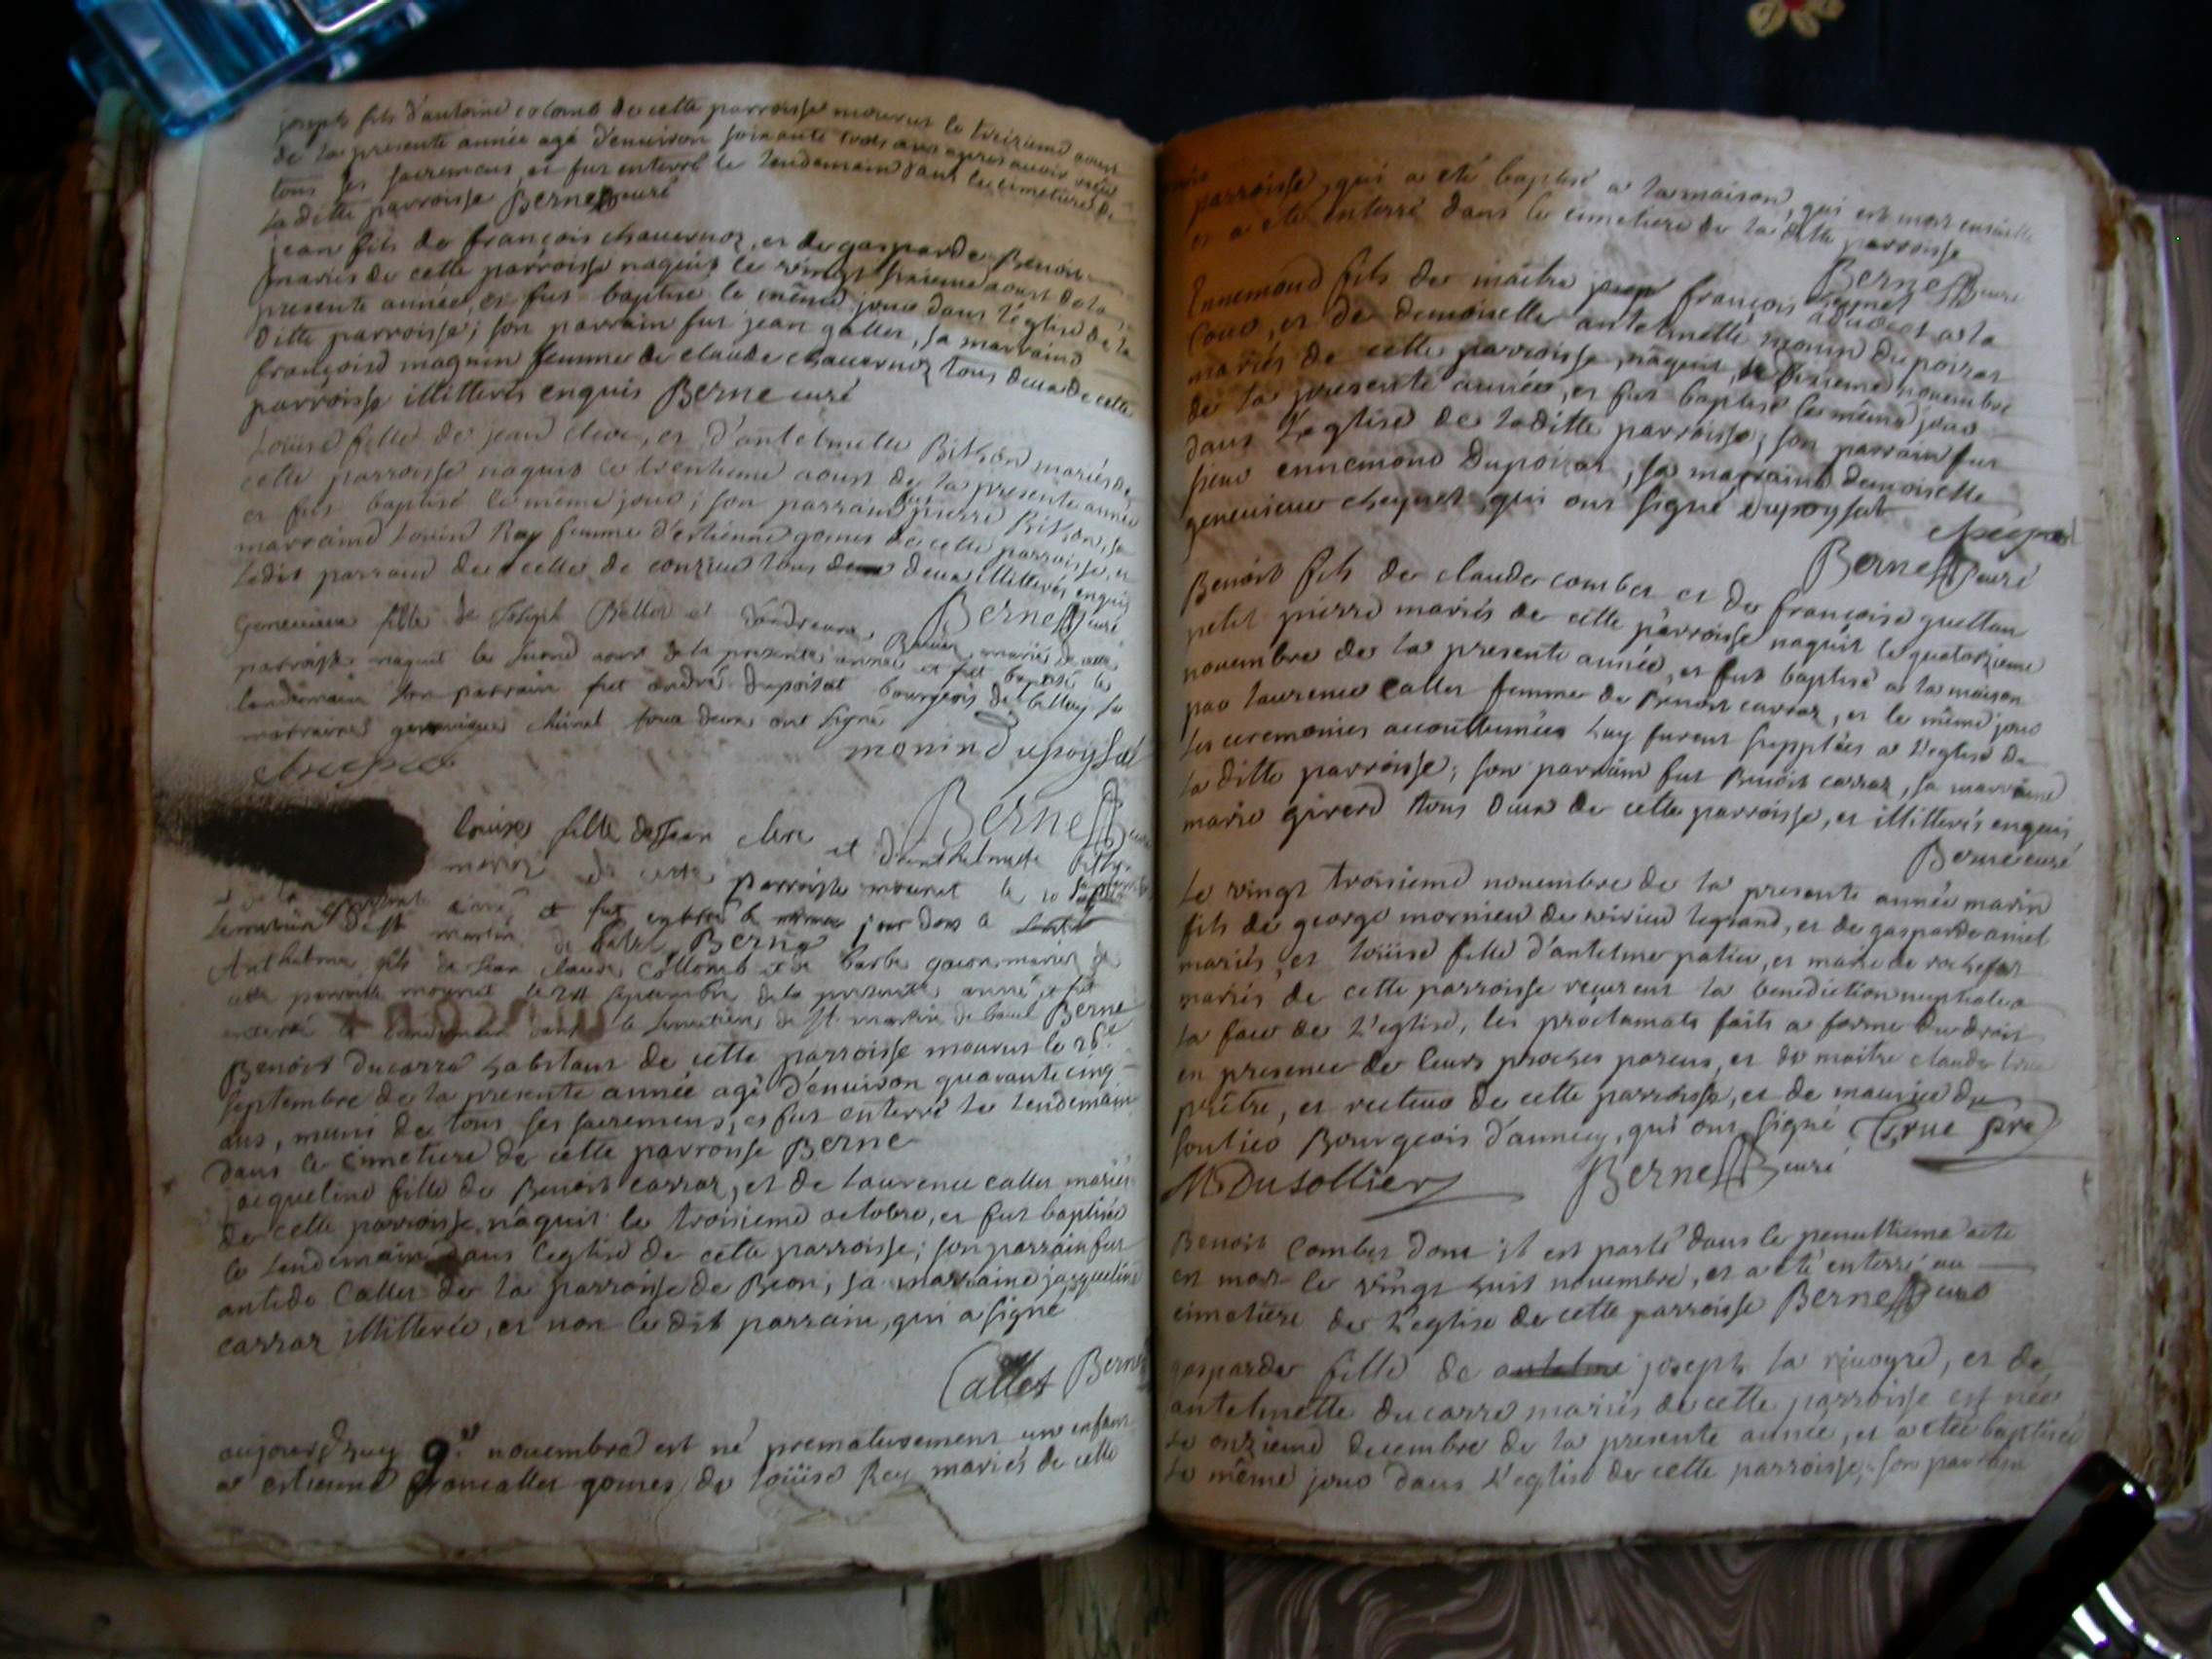 joseph fils d'antoine colomb de cette parroisse mourut le treizieme aoust
de la presente année agé d'environ soixante trois ans apres avoir reçu
tous ses sacremens, et fut enterré le lendemain dans le cimetiere de
la ditte parroisse Berne curé
jean fils de françois chavernoz, et de gasparde Benoit
mariés de cette parroisse naquit le vingt aoust de la
presente année, et fut baptise le même jour dans l'église de la
ditte parroisse; son parrain fut jean gallet, sa marraine
françoise magnin femme de claude chavernoz tous deux de cette
parroisse illitterés enquis Berne curé
Loüise fille de jean clerc, et d'antelmette Bithon mariés de
cette parroisse naquit le trentieme aoust de la presente année
et fut baptisé le même jour; son parrain fut pierre Bithon, sa
marraine Louise Ray femme d'estienne gomet de cette parroisse, et
ledit parrain de celle de conzieu tous deux illitterés enquis
Berne curé
Genevieve fille de Joseph Bellot et d'andreane mariés de cette
parroisse naquit le second aout de la presente année et fut baptisé le
lendemain son parrain fut andré dupoisat bourgeois de belley sa
marraine genevieve cheinet tous deux ont signé
monin dupoysat
cheynet
Berne curé
louise fille de Jean clerc et d'anthelmette Bithon
mariez de cette parroisse mouret le 10 septembre
de la presente année et fut enterré le même jour dans le
semetiere de st martin de Berne
Anthelme fils de Jean claude Collomb et de barbe mariés de
cette parroisse mouret le 21 septembre de la presente année et fut
enterré le lendemain dans le semetiere de st martin de Berne
Benoit ducarre habitant de cette parroisse mourut le 26.e
septembre de la presente année agé d'environ quarante cinq
ans, muni de tous ses sacremens, et fut enterré le lendemain
dans le cimetiere de cette parroisse Berne
jacqueline fille de Benoit carraz, et de laurence callet mariés
de cette parroisse, naquit le troisieme octobre, et fut baptisée
le lendemain dans l'eglise de cette parroisse; son parrain fut
antide Callet de la parroisse de Beon, sa marraine jacqueline
carraz illitterée, et non le dit parrain, qui a signé
Callet Berne
aujourd'huy 9.e novembre est né prematurement un enfant
a estienne francallet gomet, de loüise Rey mariés de cette
parroisse, qui a eté baptisé a la maison, qui est mort ensuitte
et a eté enterré dans le cimetiere de la ditte parroisse
Berne curé
Ennemond fils de maître françois cheynet avocat a la
Cour, et de demoiselle antelmette monin dupoizat
mariés de cette parroisse, naquit, le novembre
de la presente année, et fut baptisé le même jour
dans l'eglise de laditte parroisse; son parrain fut
sieur ennemond Dupoizat, sa marraine demoiselle
genevieve cheynet, qui ont signé dupoysat
cheynet
Berne curé
Benoit fils de claude combet et de françoise guettan
petit pierre mariés de cette parroisse naquit le quatorzieme
novembre de la presente année, et fut baptisé a la maison
par laurence Callet femme de Benoit carraz, et le même jour
les ceremonies accoutumées luy furent supplées a l'eglise de
la ditte parroisse; son parrain fut Benoit carraz, sa marraine
marie girerd tous deux de cette parroisse, et illitterés enquis
Berne curé
Le vingt troisieme novembre de la presente année marin
fils de george mornieu de virieu le grand, et de gasparde amiel
mariés, et loüise fille d'antelme patieu, et marie de rochefort
mariés de cette parroisse reçurent la benediction nuptiale a
la face de l'eglise, les proclamats faits a forme du droit
en presence de leurs proches parens, et de maître claude
prêtre, et recteur de cette parroisse, et de maurice du
sollier Bourgeois d'annecy, qui ont signé pre
M Dusollier Berne curé
Benoit Combet dont il est parlé dans le penultieme acte
est mort le vingt huit novembre, et a eté enterré au
cimetiere de l'eglise de cette parroisse Berne curé
gasparde fille de antelme joseph la rivoyre, et de
antelmette ducarre mariés de cette parroisse est née
le onzieme decembre de la presente année, et a eteé baptisée
le même jour dans l'eglise de cette parroisse, son parrain